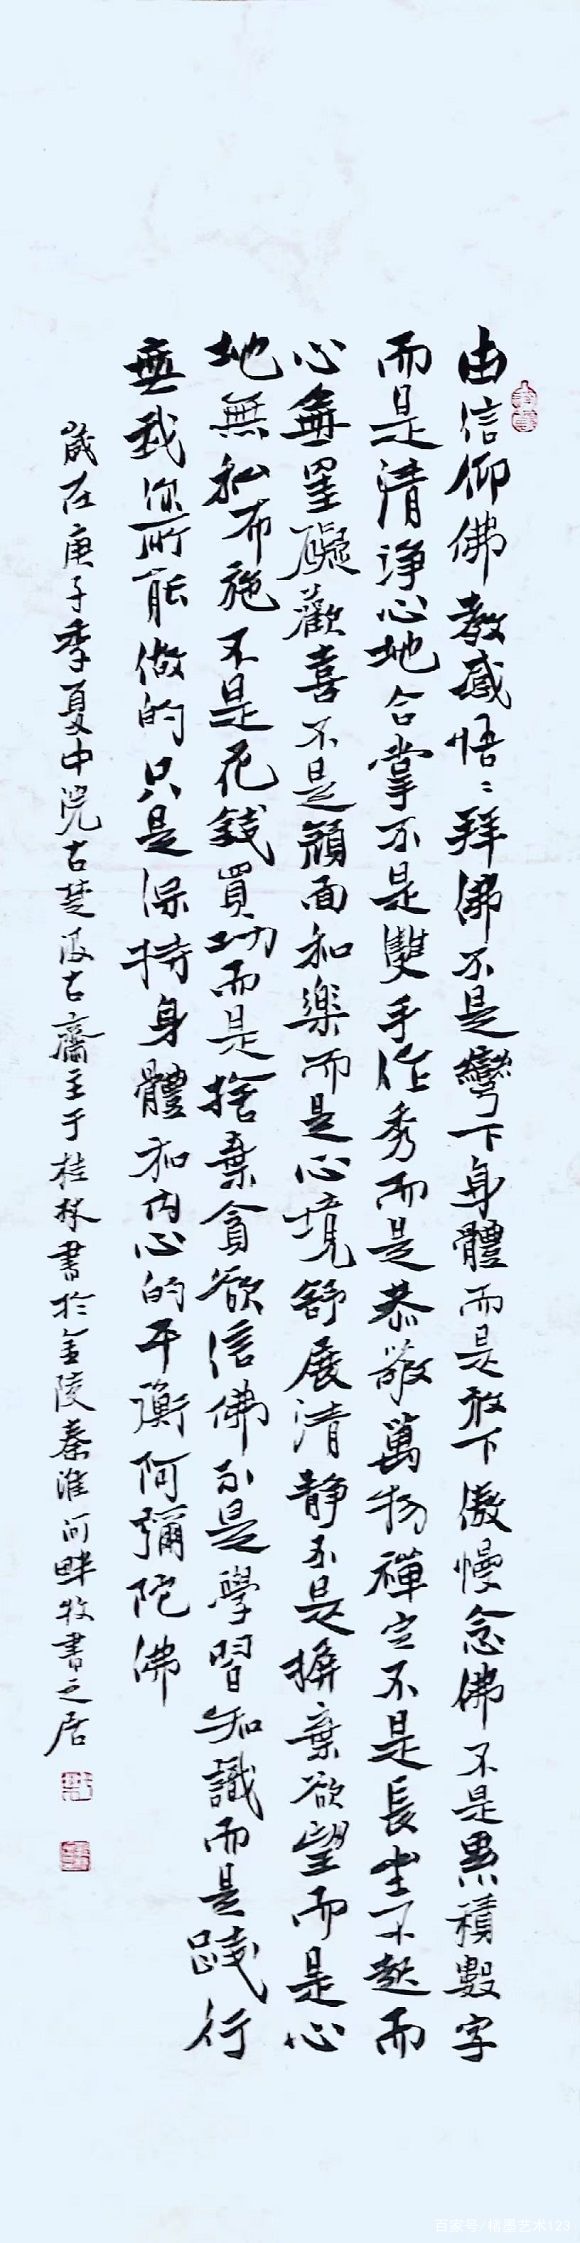 由信仰佛教感悟〻拜佛不是彎下身體而是放下傲慢念佛不是累積數字
而是清淨心地合掌不是雙手作秀而是恭敬萬物禪定不是長坐不起而
心無罣礙歡喜不是顏面和樂而是心境舒展清靜不是摒棄欲望而是心
地無私布施不是花錢買功而是捨棄貪欲信佛不是學習知識而是踐行
無我你所能做的只是保持身體和内心的平衡阿彌陀佛
歲在庚子季夏中浣古楚汲古齋主于桂林書於金陵秦淮河畔牧書之居
百家号/楮墨艺术123